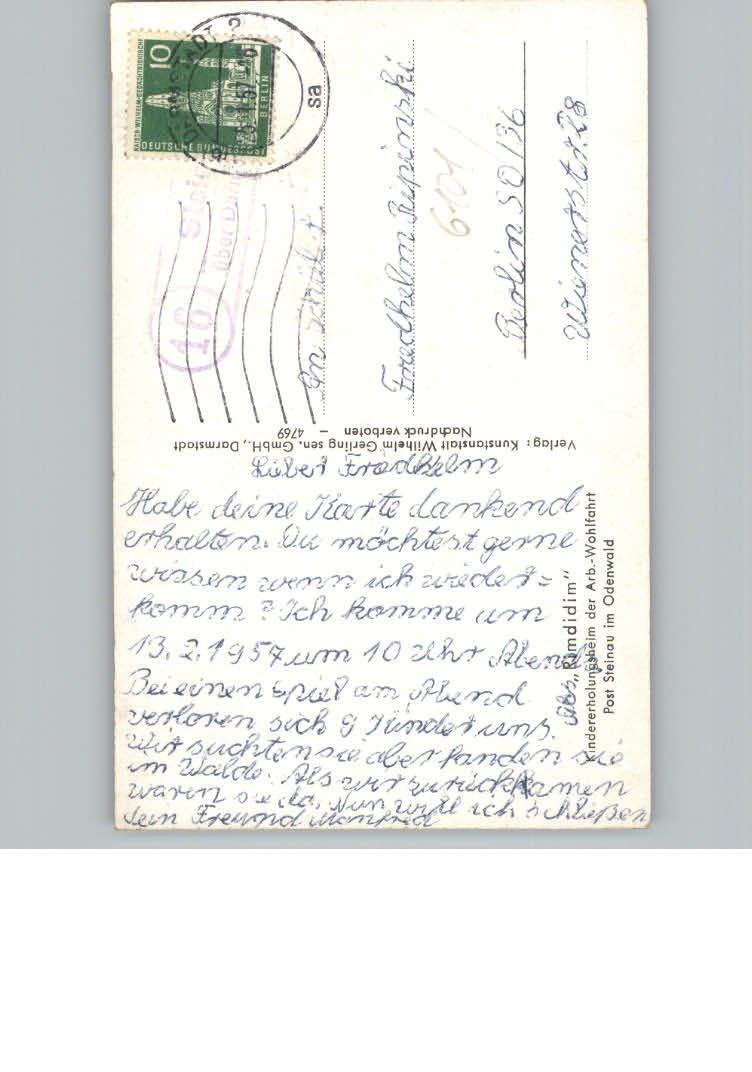 Lieber Friedhelm
Habe deine Karte dankend
erhalten. Du möchtest gerne
wissen wenn ich wieder=
komm? Ich komme um
13. 2. 1957 um 10 Uhr Abends
Bei einen Spiel am Abend
verloren sich 9 Kinder uns.
Wir suchten sie aber fanden sie
im Walde. Als wir zurückkamen
waren sie da. Nun will ich schließen
dein Freund Manfred
Abs. „Bimdidim"
Kindererholungsheim der Arb.-Wohlfahrt
Post Steinau im Odenwald
Verlag: Kunstanstalt Wilhelm Gerling sen. GmbH., Darmstadt
Nachdruck verboten – 4769
An Schüler
Friedhelm Ripinski
Berlin SO/36
Wienerstr. 28
6101
10
KAISER-WILHELM-GEDÄCHTNISKIRCHE
DEUTSCHE BUNDESPOST
BERLIN
DARMSTADT 2
sa
(16) Stein
über D